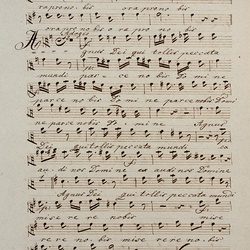 ra pro no bis ora pro no bis
ora pro no bis o ra pro no bis
Agnus Dei qui tollis peccata
mundi parce no bis Do mi ne
parce nobis Do mi ne parce nobis Domi
ne parce nobis Domi ne Agnus
Dei qui tollis peccata mundi
au di nos Domi ne ex audi nos Domine
Agnus Dei qui tollis peccata mundi
mise re re nobis mise
re re no bis mise re re no bis.